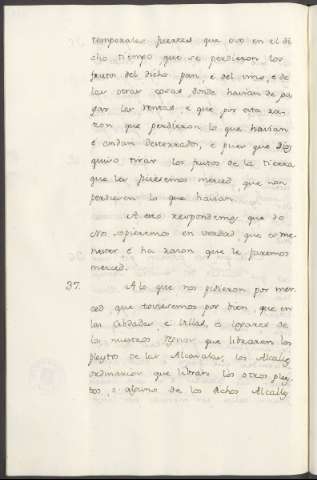 temporales fuertes que ovo en el di
cho tiempo que se perdieron los
frutos del dicho pan, e del vino, e de
las otras cosas donde havian de pa
gar las rentas, e que por esta ra-
zon que perdieron lo que havian
e andan desterrados, e pues que Dios
quiso tirar los frutos de la tierra
que les ficieremos merced, que non
perdiesen lo que havian.
A esto respondemos que do
Nos sopieremos en verdad que es me-
nester e ha razon que le faremos
merced.
37. A lo que nos pidieron por mer-
ced que toviesemos por bien, que en
las Cibdades, e Villas, e logares de
los nuestros Regnos que librasen los
pleytos de las Alcavalas, los Alcalles
ordinarios que libran los otros pley
tos, e alguno de los dichos Alcalles